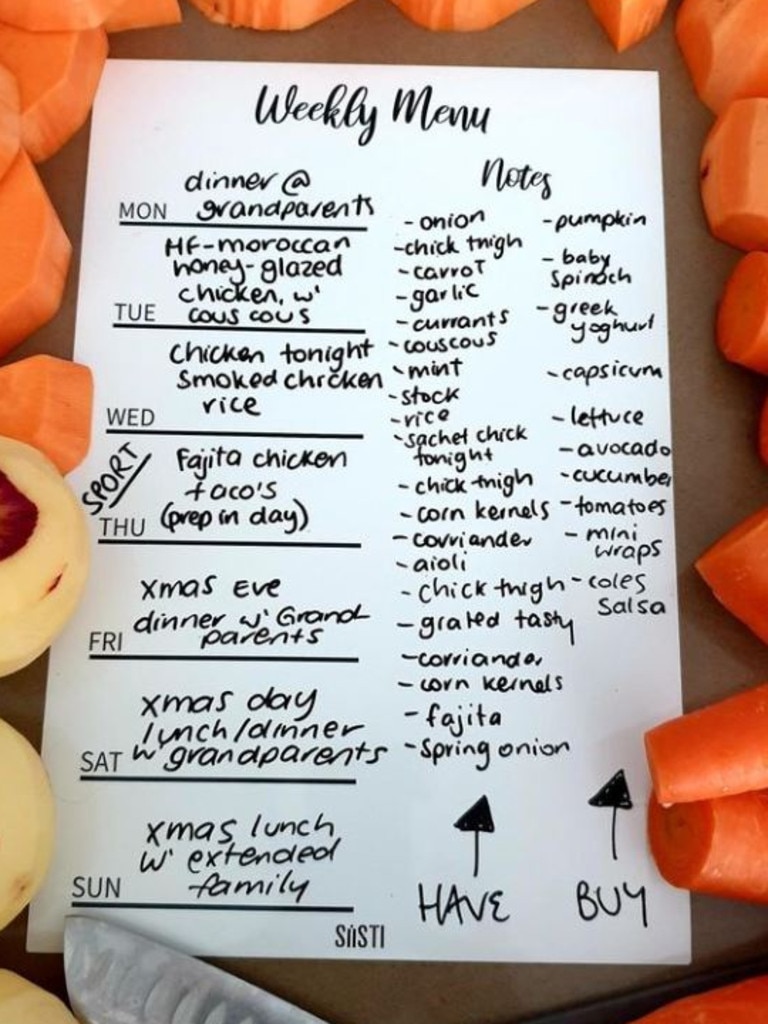 Weekly Menu
dinner @
MON grandparents
HF-moroccan
honey-glazed
chicken, w'
TUE cous cous
Chicken tonight
Smoked chicken
rice
WED
SPORT
Fajita chicken
taco's
THU (prep in day)
xmas Eve
dinner w' Grand
FRI parents
xmas day
lunch/dinner
SAT w' grandparents
xmas lunch
w' extended
SUN family
Notes
- onion
- chick thigh
- carrot
- garlic
- currants
- couscous
- mint
- stock
- rice
- sachet chick
tonight
- chick thigh
- corn kernels
- corriander
- aioli
- chick thigh
- grated tasty
- corriander
- corn kernels
- fajita
- spring onion
HAVE
- pumpkin
- baby
spinach
- greek
yoghurt
- capsicum
- lettuce
- avocado
- cucumber
- tomatoes
- mini
wraps
- coles
salsa
BUY
SiiSTI